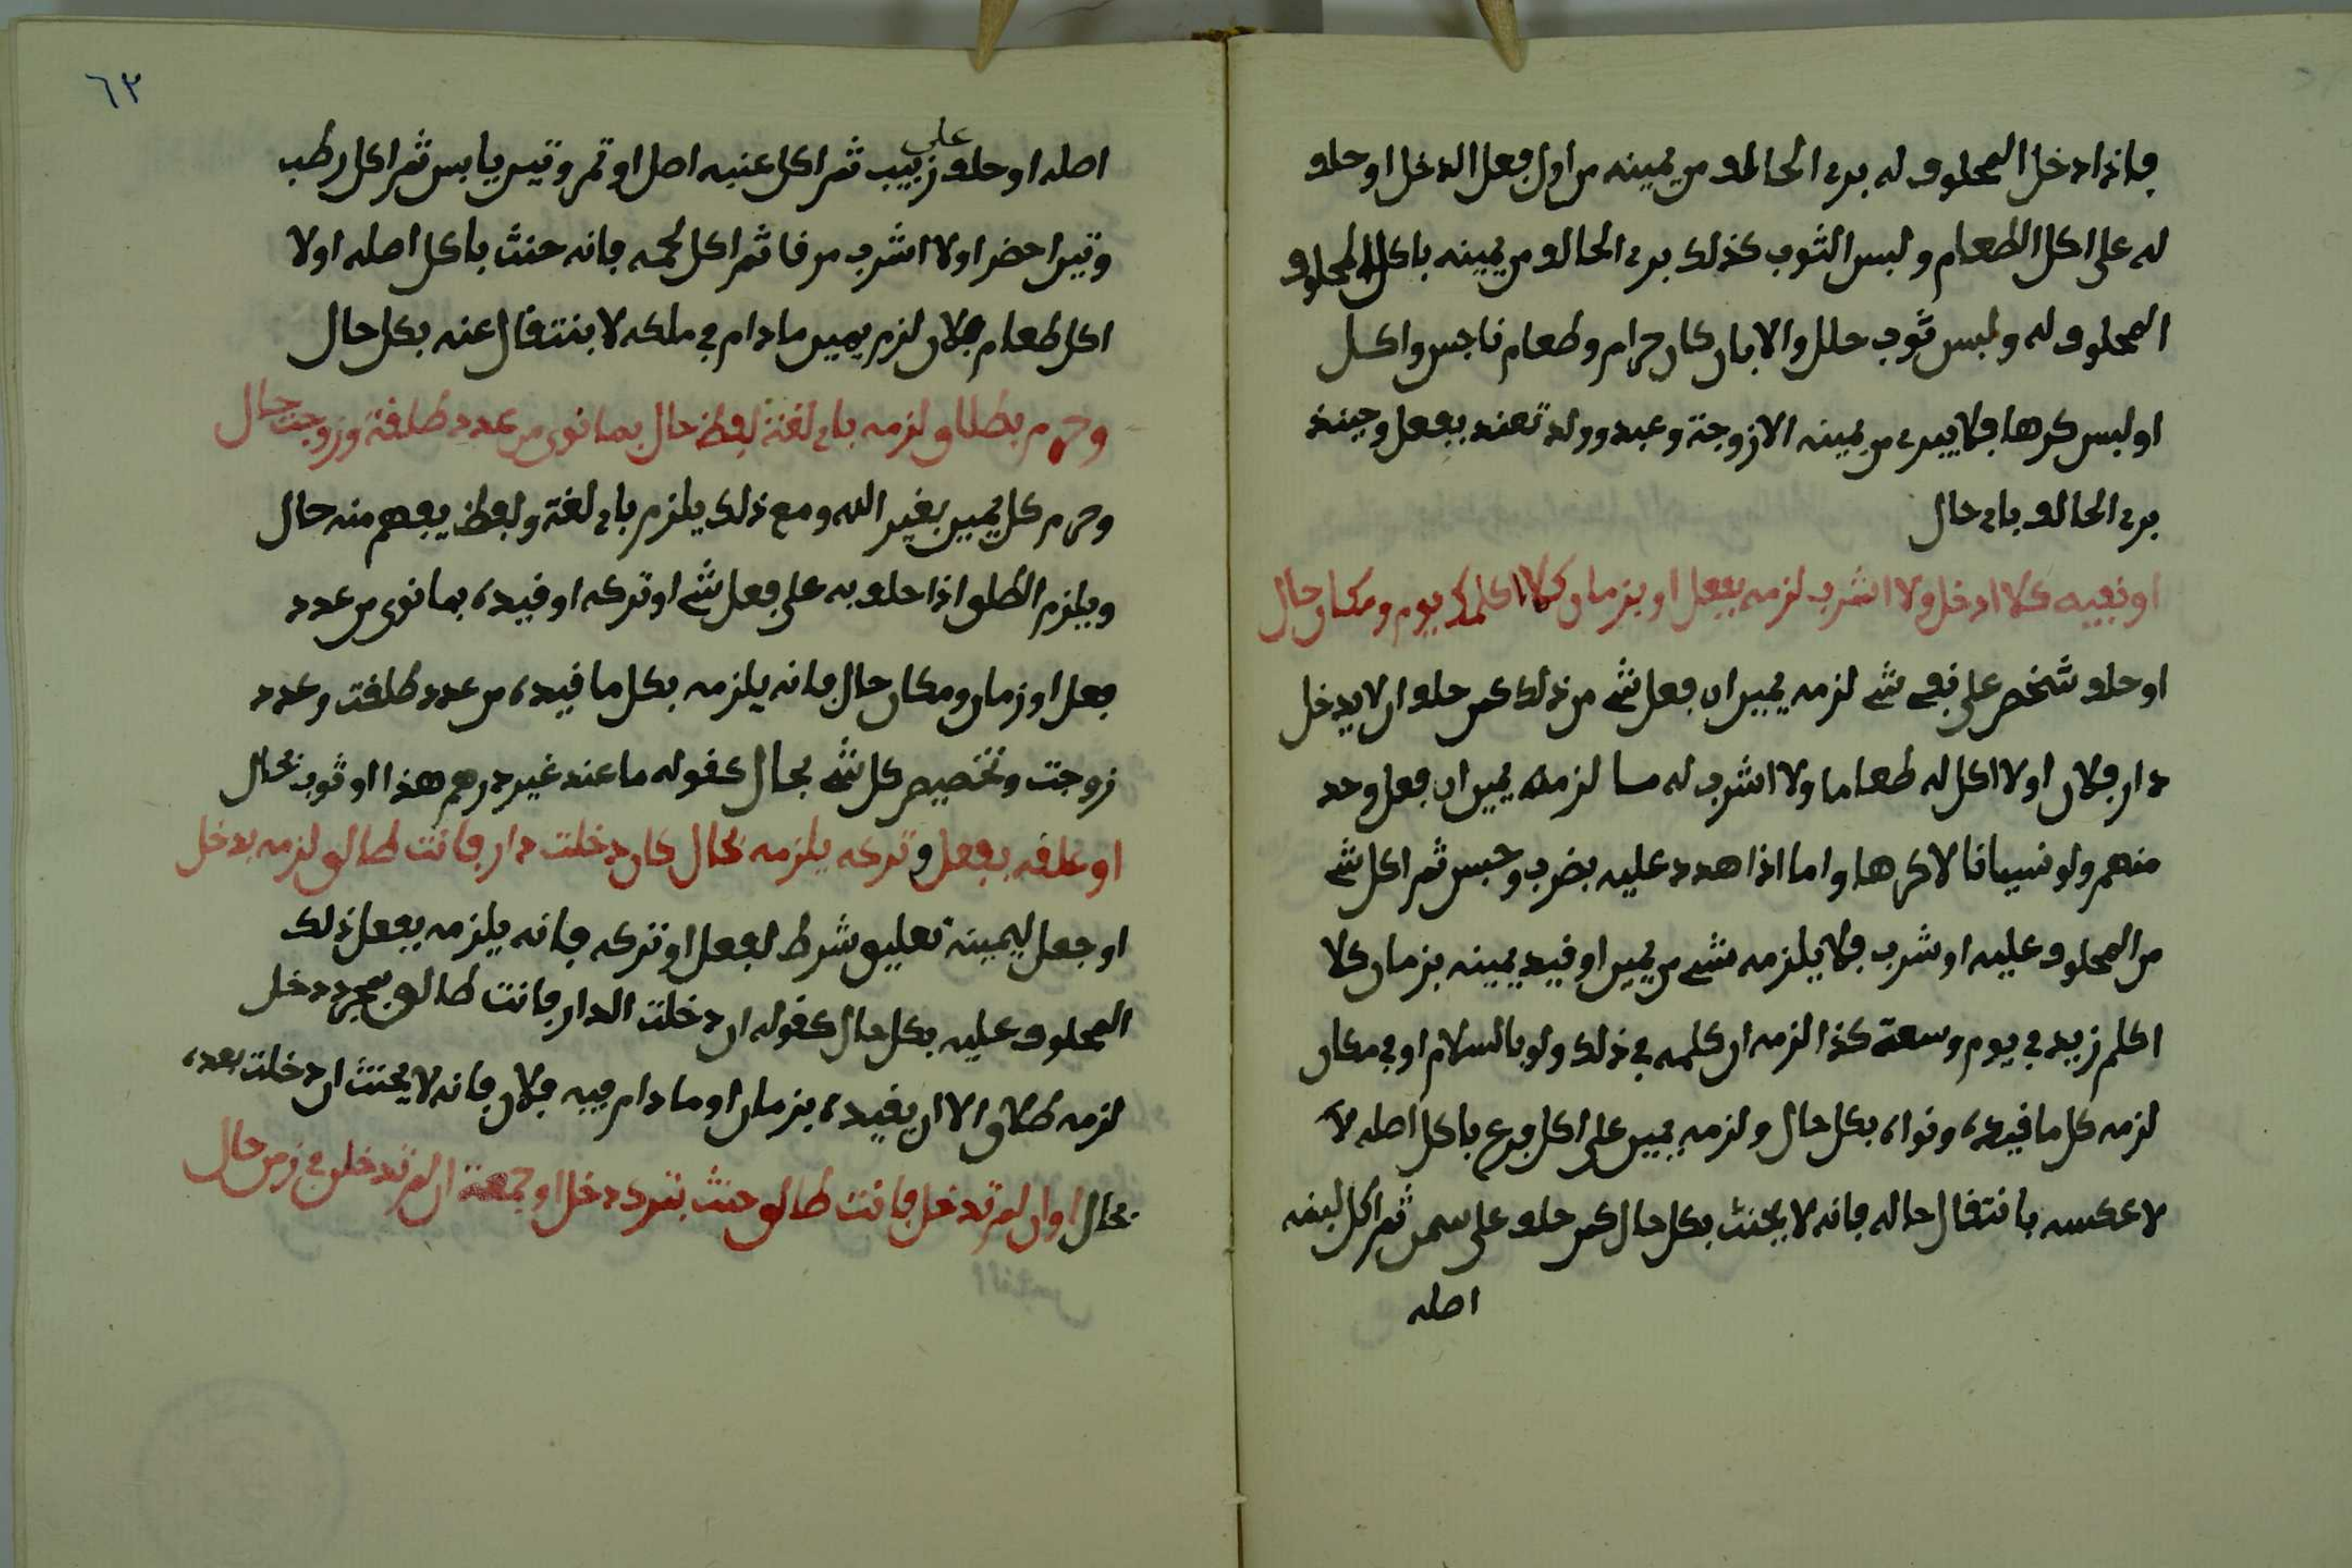 فاذا دخل المحلوف له برء الحالف من يمينه من اول فعل الدخل او حلف
له على اكل الطعام ولبس الثوب كذلك برء الحالف من يمينه باكل المحلوف
المحلوف له ولبس ثوب حلل والا بان كان حرام وطعام ناجس واكل
او لبس كرها فلا يبرء من يمينه الا زوجة وعبد وولد تعند بفعل وحينذ
برء الحالف باي حال
او نفيه كلا ادخل ولا اشرب لزمه بفعل او بزمان كلا اكلمك يوم ومكان حال
او حلف شخص على نفي شے لزمه يمين ان فعل شے من ذلك كمن حلف ان لا يدخل
دار فلان او لا اكل له طعاما ولا اشرب له ما لزمه يمين ان فعل وحد
منهم ولو نسيانا لا كرها واما اذا هدد عليه بضرب وحبس ثم اكل شے
من المحلوف عليه او شرب فلا يلزمه شے من يمين او قيد يمينه بزمان كلا
اكلم زيد في يوم وسعة كذا لزمه ان كلمه في ذلك ولو بالسلام او في مكان
لزمه كل ما قيده ونواه بكل حال ولزمه يمين على اكل فرع باكل اصله لا
لا عكسه بانتقال حاله فانه لا يحنث بكل حال كمن حلف على سمن ثم اكل لبنه
اصله
٦٣
على
اصله او حلف زبيب ثم اكل عنبه اصل او تمر وتين يابس ثم اكل رطب
وتين احضر او لا اشرب مرقا ثم اكل لحمه فانه حنث باكل اصله او لا
اكل طعام فلان لزم يمين ما دام في ملكه لا بنتقال عنه بكل حال
وحرم بطلاق لزمه باي لغة لفظ حال بما نوى من عدد طلقة وزوجت حال
وحرم كل يمين بغير الله ومع ذلك يلزم باي لغة ولفظ يفهم منه حال
ويلزم الطلق اذا حلف به على فعل شے او تركه او قيده بما نوى من عدد
فعل او زمان ومكان حال فانه يلزمه بكل ما قيده من عدد طلقت وعدد
زوجت وتخصيص كل شے بحال كقوله ما عند غير درهم هذا او ثوب بحال
او علقه بفعل وتركه يلزمه بحال كان دخلت دار فانت طالق لزمه بدخل
او جعل ليمينه تعليق شرط لفعل او تركه فانه يلزمه بفعل ذلك
المحلوف عليه بكل حال كقوله ان دخلت الدار فانت طالق بمجرد دخل
لزمه طلاق الا ان يقيده بزمان او ما دام فيه فلان فانه لا يحنث ان دخلت بعده
بحال او ان لم تدخل فانت طالق حنث بترك دخل او جمعة ان لم تدخل في زمن حال